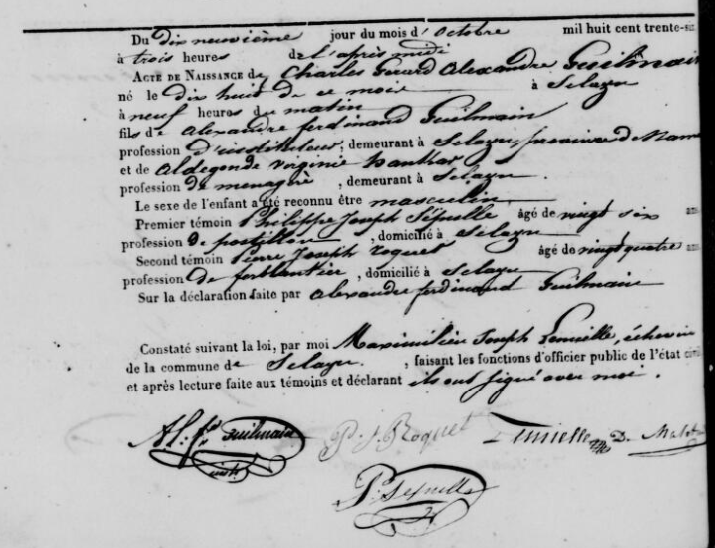 Du dix neuvième jour du mois d'Octobre mil huit cent trente-
à trois heures de l'après midi
ACTE DE NAISSANCE de Charles Gerard Alexandre Guilmain
né le dix huit de ce mois à Sclayn
à neuf heures du matin
fils de Alexandre ferdinand Guilmain
profession d'instituteur, demeurant à Sclayn, province de Namur
et de Aldegonde Virginie
profession de menagère, demeurant à Sclayn.
Le sexe de l'enfant a été reconnu être masculin.
Premier témoin Philippe Joseph Sépulle âgé de vingt six ans
profession de postillon, domicilié à Sclayn
Second témoin Pierre Joseph Roquet âgé de vingt quatre ans
profession de ferblantier, domicilié à Sclayn
Sur la déclaration faite par Alexandre ferdinand Guilmain
Constaté suivant la loi, par moi Maximilien Joseph, échevin
de la commune de Sclayn, faisant les fonctions d'officier public de l'état civil
et après lecture faite aux témoins et déclarant ils ont signé avec moi.
Al: fd Guilmain P. J. Roquet D.
inst:
P: Sepulle